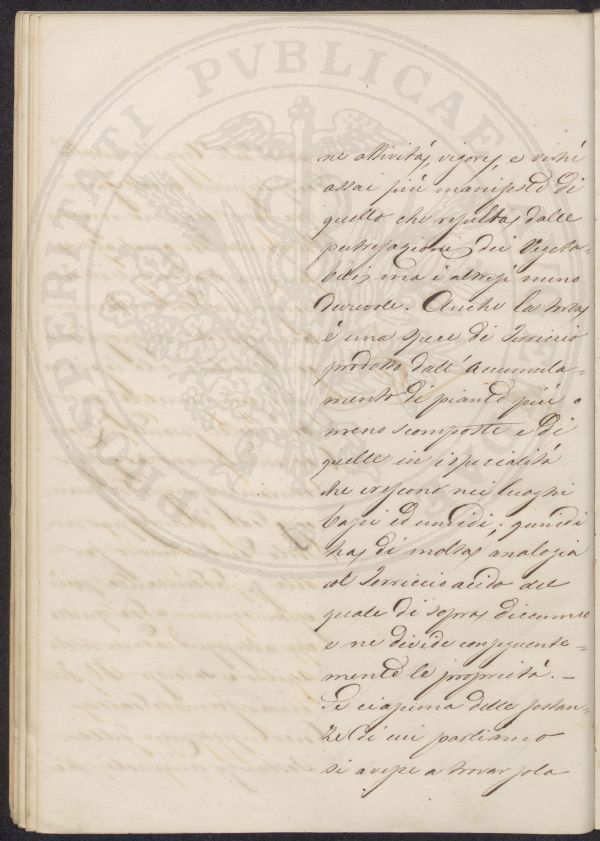 PROSPERITATI PVBLICAE
ne attività, vigore, e virtù
assai più manifeste di
quello che risulta dalle
putrefazione dei Vegeta-
bili; ma è altresì meno
durevole. Anche la torba
è una spece di Terriccio
prodotto dall' accumula-
mento di piante più o
meno scomposte e di
quelle in ispecialità
che crescono nei luoghi
bassi ed umidi; quindi
ha di molta analogia
col Terriccio acido del
quale di sopra dicemmo
e ne divide conseguente-
mente le proprietà. -
Se ciascuna delle sostan-
ze di cui parliamo
si avesse a trovar sola